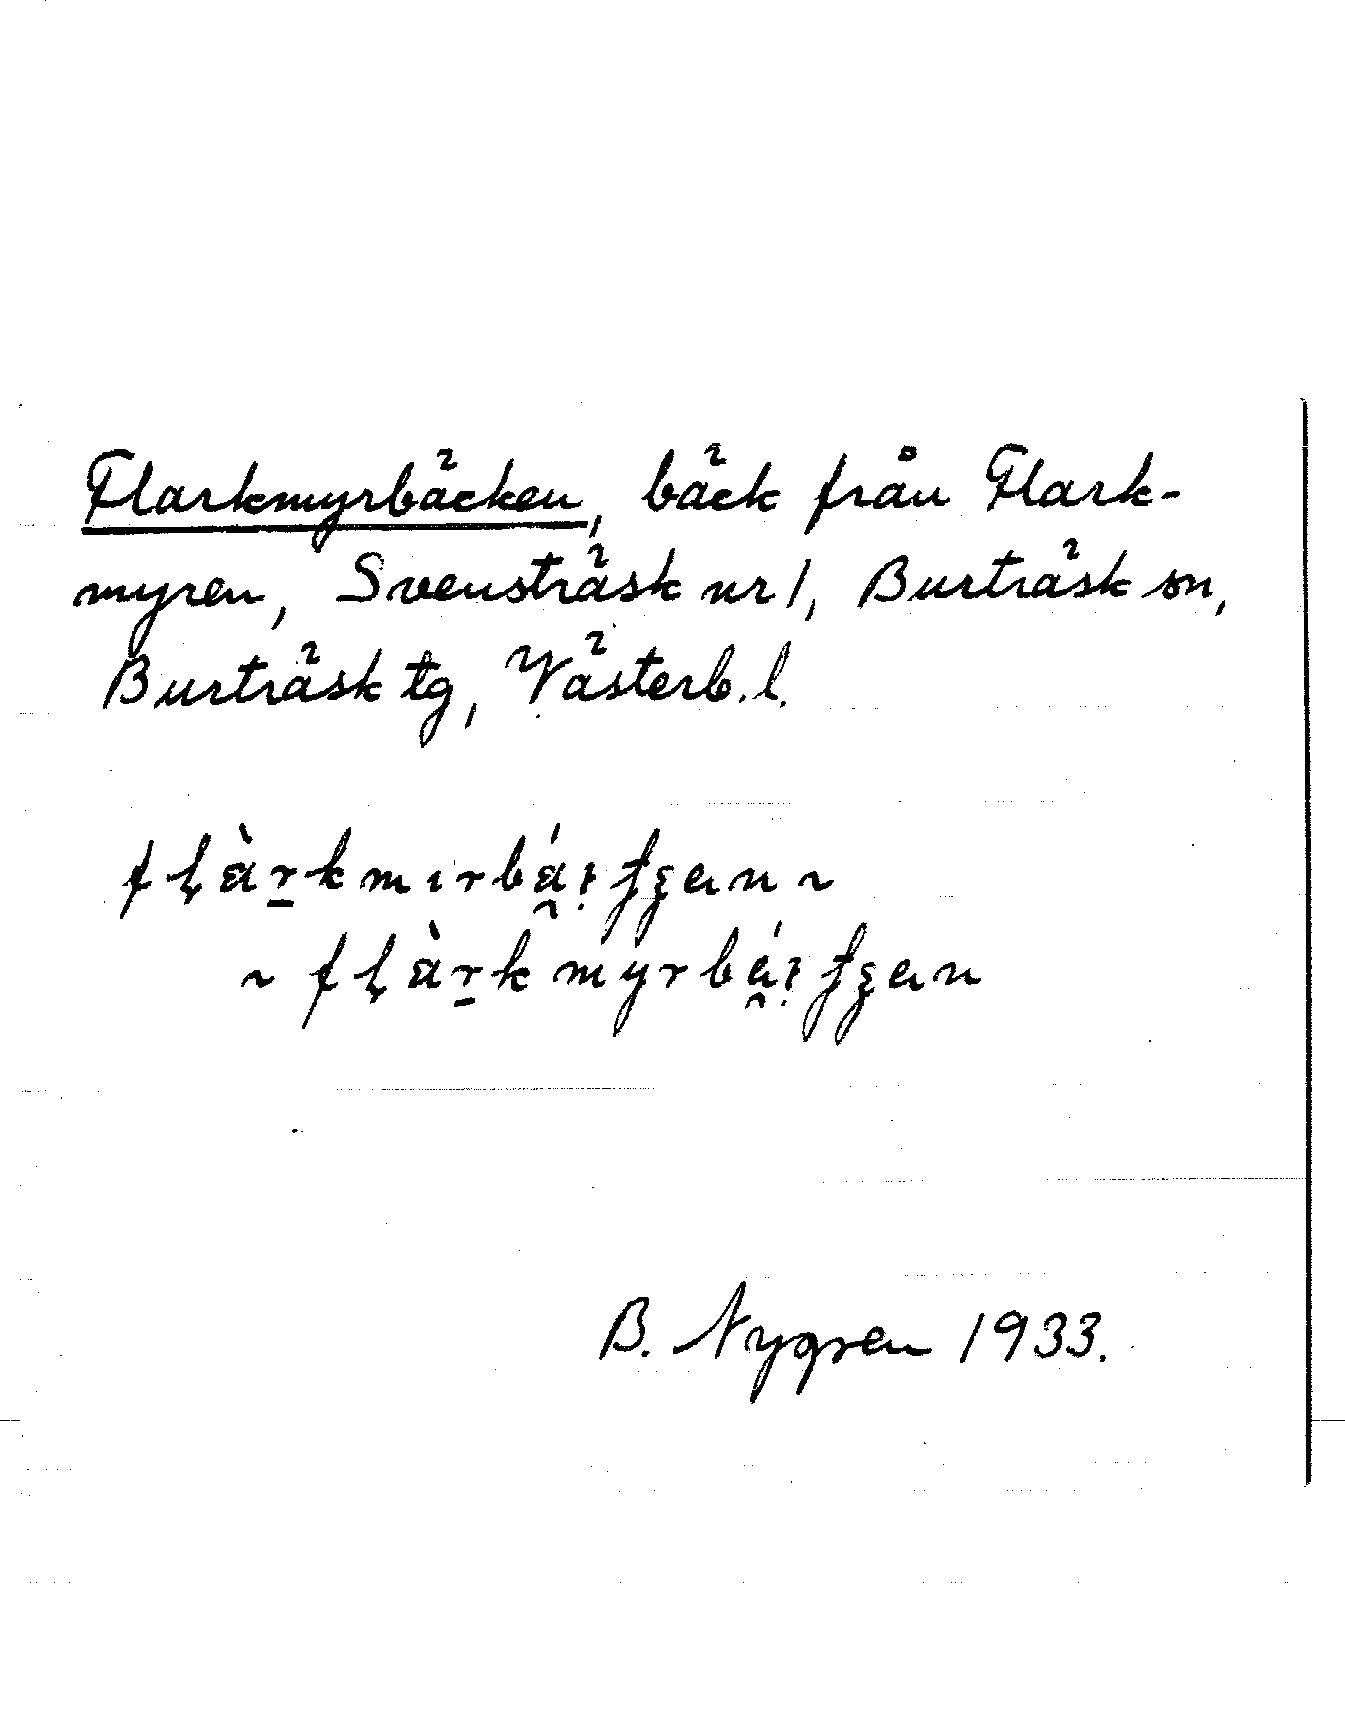 Flarkmyrbäcken, bäck från Flark-
myren, Svensträsk nr 1, Burträsk sn,
Burträsk tg, Västerb. l.
B. Nygren 1933.